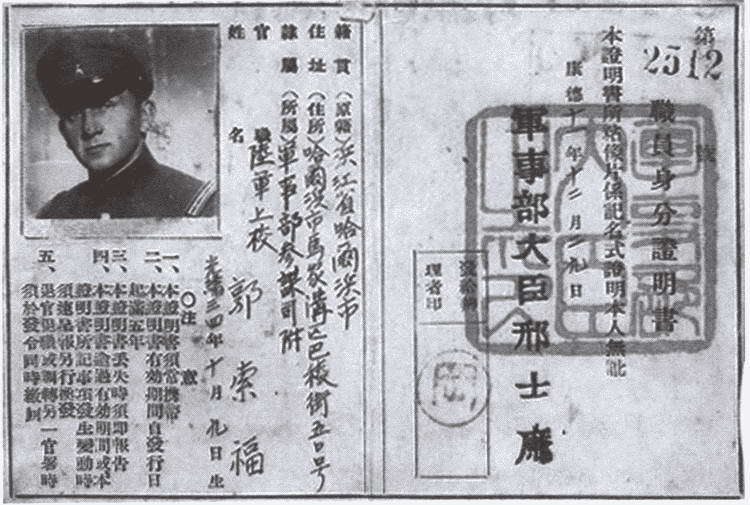 第 2512 號
職員身分證明書
本證明書所貼像片係記名式證明本人無訛
康德十一年十二月 九日
軍事部大臣邢士廉
理者印
籍貫（原籍）濱江省哈爾濱市
住址（住所）哈爾濱市馬家溝 街五〇号
隸屬（所屬）軍事部參謀司附
官職 陸軍上校
姓名 郭索福
光緒三四年十月九日生
〇注意
一、本證明書須常携帶
二、本證明書有効期間自發行日
起滿五年
三、本證明書丟失時須即報告
四、本證明書逾過有効期間或本
證明書所記事項發生變動時
須速呈報另行換發
五、退官退職或調轉另一官署時
須於發令同時繳回